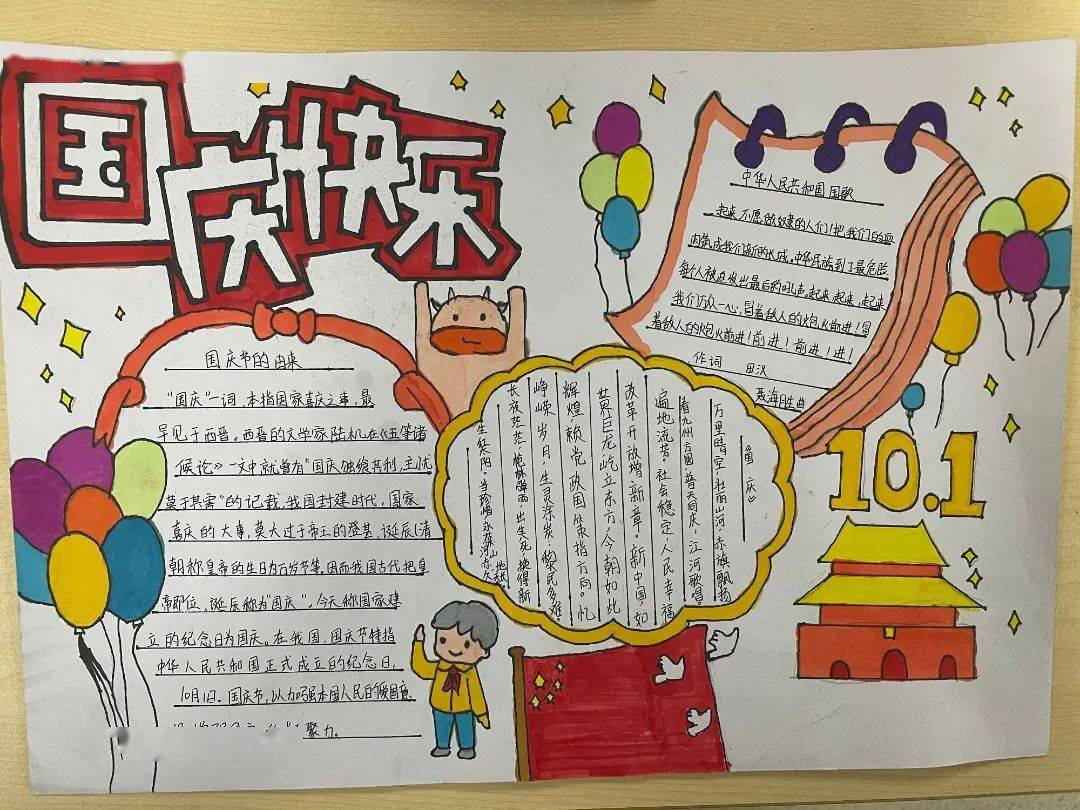 国庆快乐
国庆节的由来
"国庆"一词,本指国家喜庆之事,最
早见于西晋。西晋的文学家陆机在《五等诸
候论》一文中就曾有"国庆独飨其利,主忧
莫与其害"的记载、我国封建时代,国家
喜庆的大事,莫大过于帝王的登基、诞辰(清
朝称皇帝的生日为万岁节等。因而我国古代把皇
帝即位、诞辰称为"国庆"。今天称国家建
立的纪念日为国庆。在我国,国庆节特指
中华人民共和国正式成立的纪念日,
10月1日.国庆节,以加强本国人民的爱国意
聚力。
《国庆》
万里晴空,壮丽山河,赤旗飘扬
看九州方圆 普天同庆,江河歌唱。
遍地流芳。社会稳定,人民幸福
改革开放增新章。新中国,如
世界巨龙屹立东方,今朝如此
辉煌赖党政国策指方向。忆
峥嵘岁月,生灵涂炭,黎民多难。
长夜茫茫,枪林弹雨,出生死,换得新
中华人民共和国国歌
起来,不愿做奴隶的人们!把我们的血
肉筑成我们新的长城。中华民族到了最危险
每个人被迫发出最后的吼声。起来,起来,起来
我们万众一心,冒着敌人的炮火前进!冒
着敌人的炮火前进!前进!前进!进!
作词 田汉
聂海胜曲
10.1